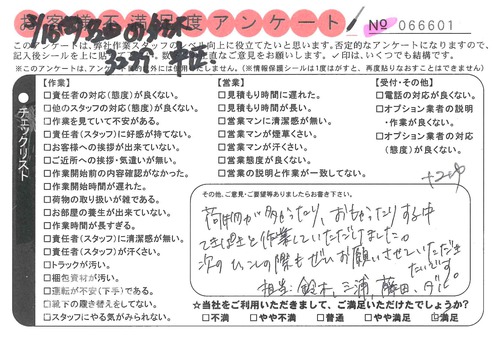 お客様不満足度アンケート
No 066601
このアンケートは、弊社作業スタッフのレベル向上に役立てたいと思います。否定的なアンケートになりますので、
✓印は、いくつでも結構です。
(※情報保護シールは1度がすと、再度貼りなおすことはできません)
チェックリスト
【作業】
□責任者の対応(態度)が良くない。
□他のスタッフの対応(態度)が良くない。
□作業を見ていて不安がある。
□責任者(スタッフ)に好感が持てない。
□お客様への挨拶が出来ていない。
□ご近所への挨拶・気遣いが無い。
□作業開始前の内容確認がなかった。
□作業開始時間が遅れた。
□荷物の取り扱いが雑である。
□お部屋の養生が出来ていない。
□作業時間が長すぎる。
□責任者(スタッフ)に清潔感が無い。
□責任者(スタッフ)が汗くさい。
□トラックが汚い。
□梱包資材が汚い。
□運転が不安(下手)である。
□靴下の履き替えをしてない。
□スタッフにやる気がみられない。
【営業】
□見積もり時間に遅れた。
□見積もり時間が長い。
□営業マンに清潔感が無い。
□営業マンが煙草くさい。
□営業マンが汗くさい。
□営業態度が良くない。
□営業の説明と作業が一致してない。
【受付・その他】
□電話の対応が良くない。
□オプション業者の説明
・作業が良くない。
□オプション業者の対応
(態度)が良くない。
その他、ご意見・ご要望等ありましたらお書き下さい。
荷物が多かったり、おもかったりする中
てきぱきと作業していただけました。
次のひっこしの際もぜひお願いさせていただき
たいです。
担当:鈴木、三浦、藤田、
☆当社をご利用いただきまして、ご満足いただけたでしょうか?
□不満 □やや不満 □普通 □やや満足 ☑満足